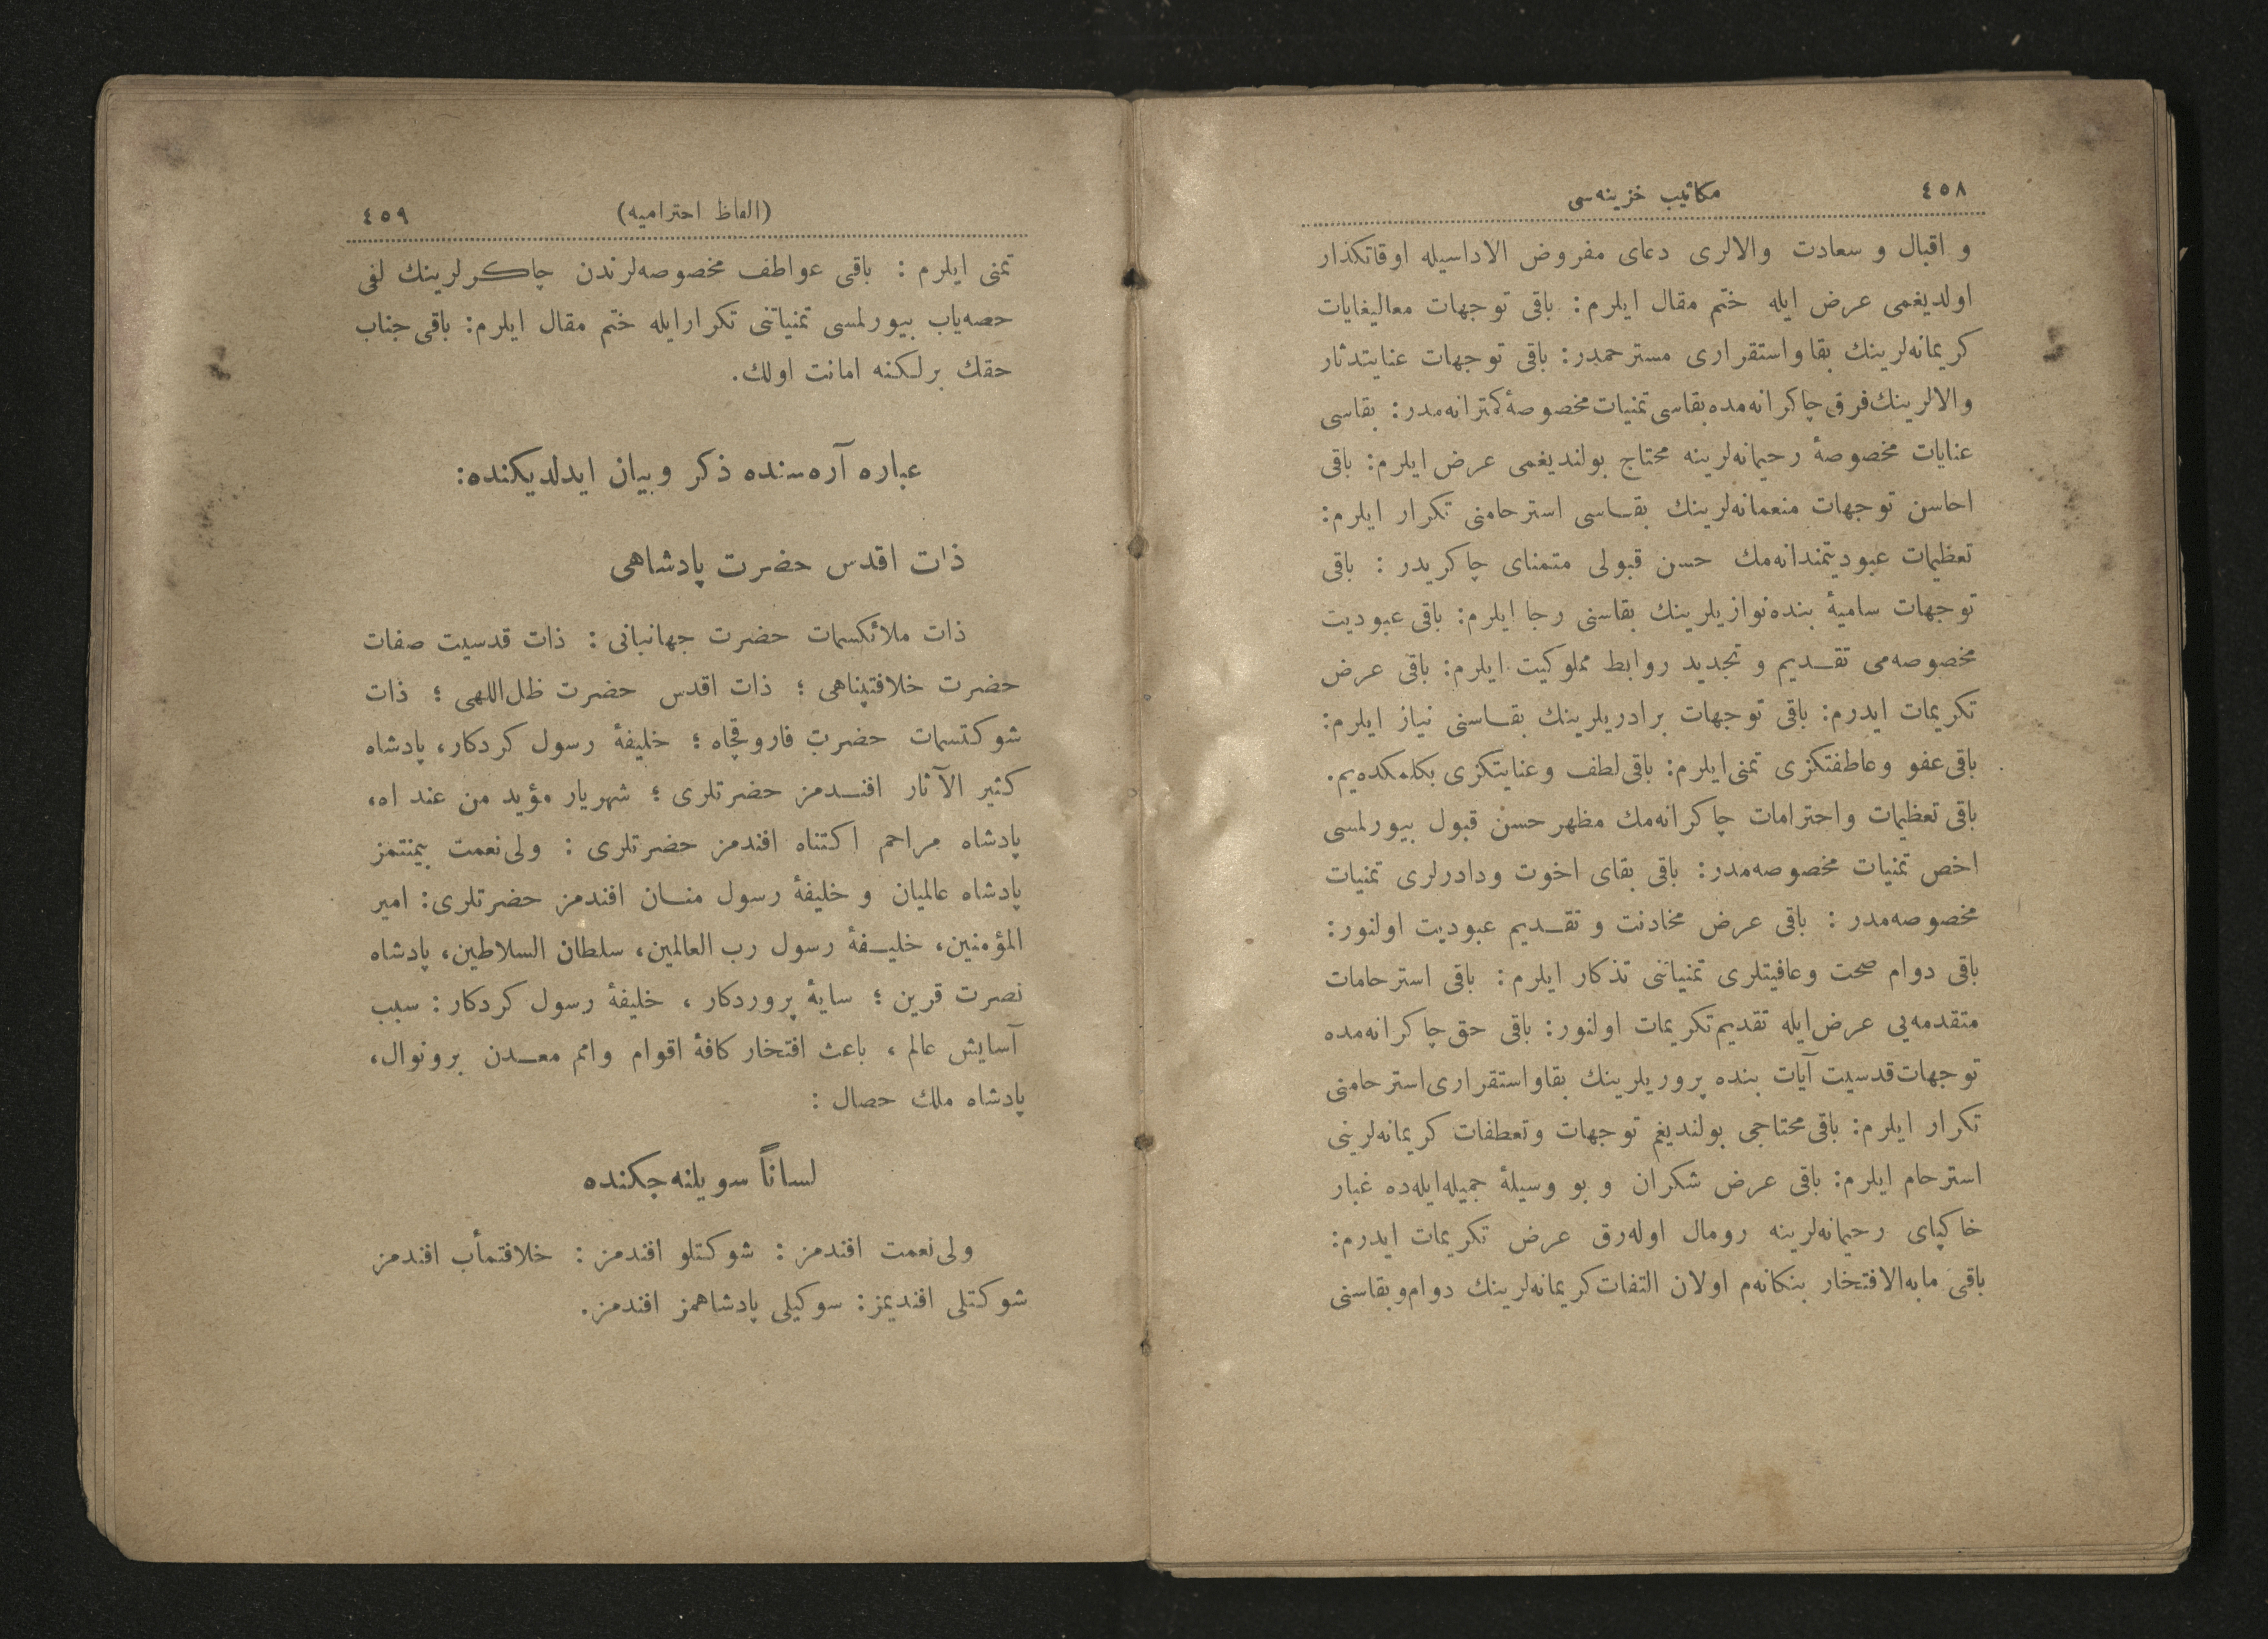 ٤٥٨ مكاتيب خزينه‌سى
و اقبال و سعادت والالرى دعاى مفروض الاداسيله اوقاتكذار
اولديغمى عرض ايله ختم مقال ايلرم: باقى توجهات معاليغايات
كريمانه‌لرينك بقا واستقرارى مسترحمدر: باقى توجهات عنايتدثار
والالرينك فرق چاكرانه‌مده بقاسى تمنيات مخصوصهٔ كمترانه‌مدر: بقاسى
عنايات مخصوصهٔ رحيمانه‌لرينه محتاج بولنديغمى عرض ايلرم: باقى
احاسن توجهات منعمانه‌لرينك بقـاسى استرحامنى تكرار ايلرم:
تعظيمات عبوديتمندانه‌مك حسن قبولى متمناى چاكريدر : باقى
توجهات ساميهٔ بنده‌نوازيلرينك بقاسنى رجا ايلرم: باقى عبوديت
مخصوصه‌مى تقـديم و تجديد روابط مملوكيت ايلرم: باقى عرض
تكريمات ايدرم: باقى توجهات برادريلرينك بقـاسنى نياز ايلرم:
باقى عفو وعاطفتكزى تمنى ايلرم: باقى لطف وعنايتكزى بكلمكده‌يم.
باقى تعظيمات واحترامات چاكرانه‌مك مظهر حسن قبول بيورلمسى
اخص تمنيات مخصوصه‌مدر: باقى بقاى اخوت ودادرلرى تمنيات
مخصوصه‌مدر : باقى عرض مخادنت و تقـديم عبوديت اولنور:
باقى دوام صحت وعافيتلرى تمنياتنى تذكار ايلرم: باقى استرحامات
متقدمه‌يى عرض ايله تقديم تكريمات اولنور: باقى حق چاكرانه‌مده
توجهات قدسيت آيات بنده پروريلرينك بقاواستقرارى استرحامنى
تكرار ايلرم: باقى محتاجى بولنديغم توجهات وتعطفات كريمانه‌لرينى
استرحام ايلرم: باقى عرض شكران و بو وسيلهٔ جميله‌ايله‌ده غبار
خاكپاى رحيمانه‌لرينه رومال اوله‌رق عرض تكريمات ايدرم:
باقى مابه‌الافتخار بنكانه‌م اولان التفات كريمانه‌لرينك دوام وبقاسنى
(الفاظ احتراميه) ٤٥٩
تمنى ايلرم : باقى عواطف مخصوصه‌لرندن چاكرلرينك لفى
حصه‌ياب بيورلمسى تمنياتنى تكرارايله ختم مقال ايلرم: باقى جناب
حقك برلكنه امانت اولك.
عباره آره‌سنده ذكر وبيان ايدلديكنده:
ذات اقدس حضرت پادشاهى
ذات ملائكسمات حضرت جهانبانى : ذات قدسيت صفات
حضرت خلافتپناهى ؛ ذات اقدس حضرت ظل‌اللهى ؛ ذات
شوكتسمات حضرت فاروقجاه ؛ خليفهٔ رسول كردكار، پادشاه
كثير الآثار افنـدمز حضرتلرى ؛ شهريار مؤيد من عند اه،
پادشاه مراحم اكتناه افندمز حضرتلرى : ولى‌نعمت بيمنتمز
پادشاه عالميان و خليفهٔ رسول منـان افندمز حضرتلرى: امير
المؤمنين، خليـفهٔ رسول رب العالمين، سلطان السلاطين، پادشاه
نصرت قرين ؛ سايهٔ پروردكار ، خليفهٔ رسول كردكار: سبب
آسايش عالم ، باعث افتخار كافهٔ اقوام وامم معـدن برونوال،
پادشاه ملك حصال :
لساناً سويلنه‌جكنده
ولى‌نعمت افندمز : شوكتلو افندمز : خلافتمأب افندمز
شوكتلى افنديمز: سوكيلى پادشاهمز افندمز.